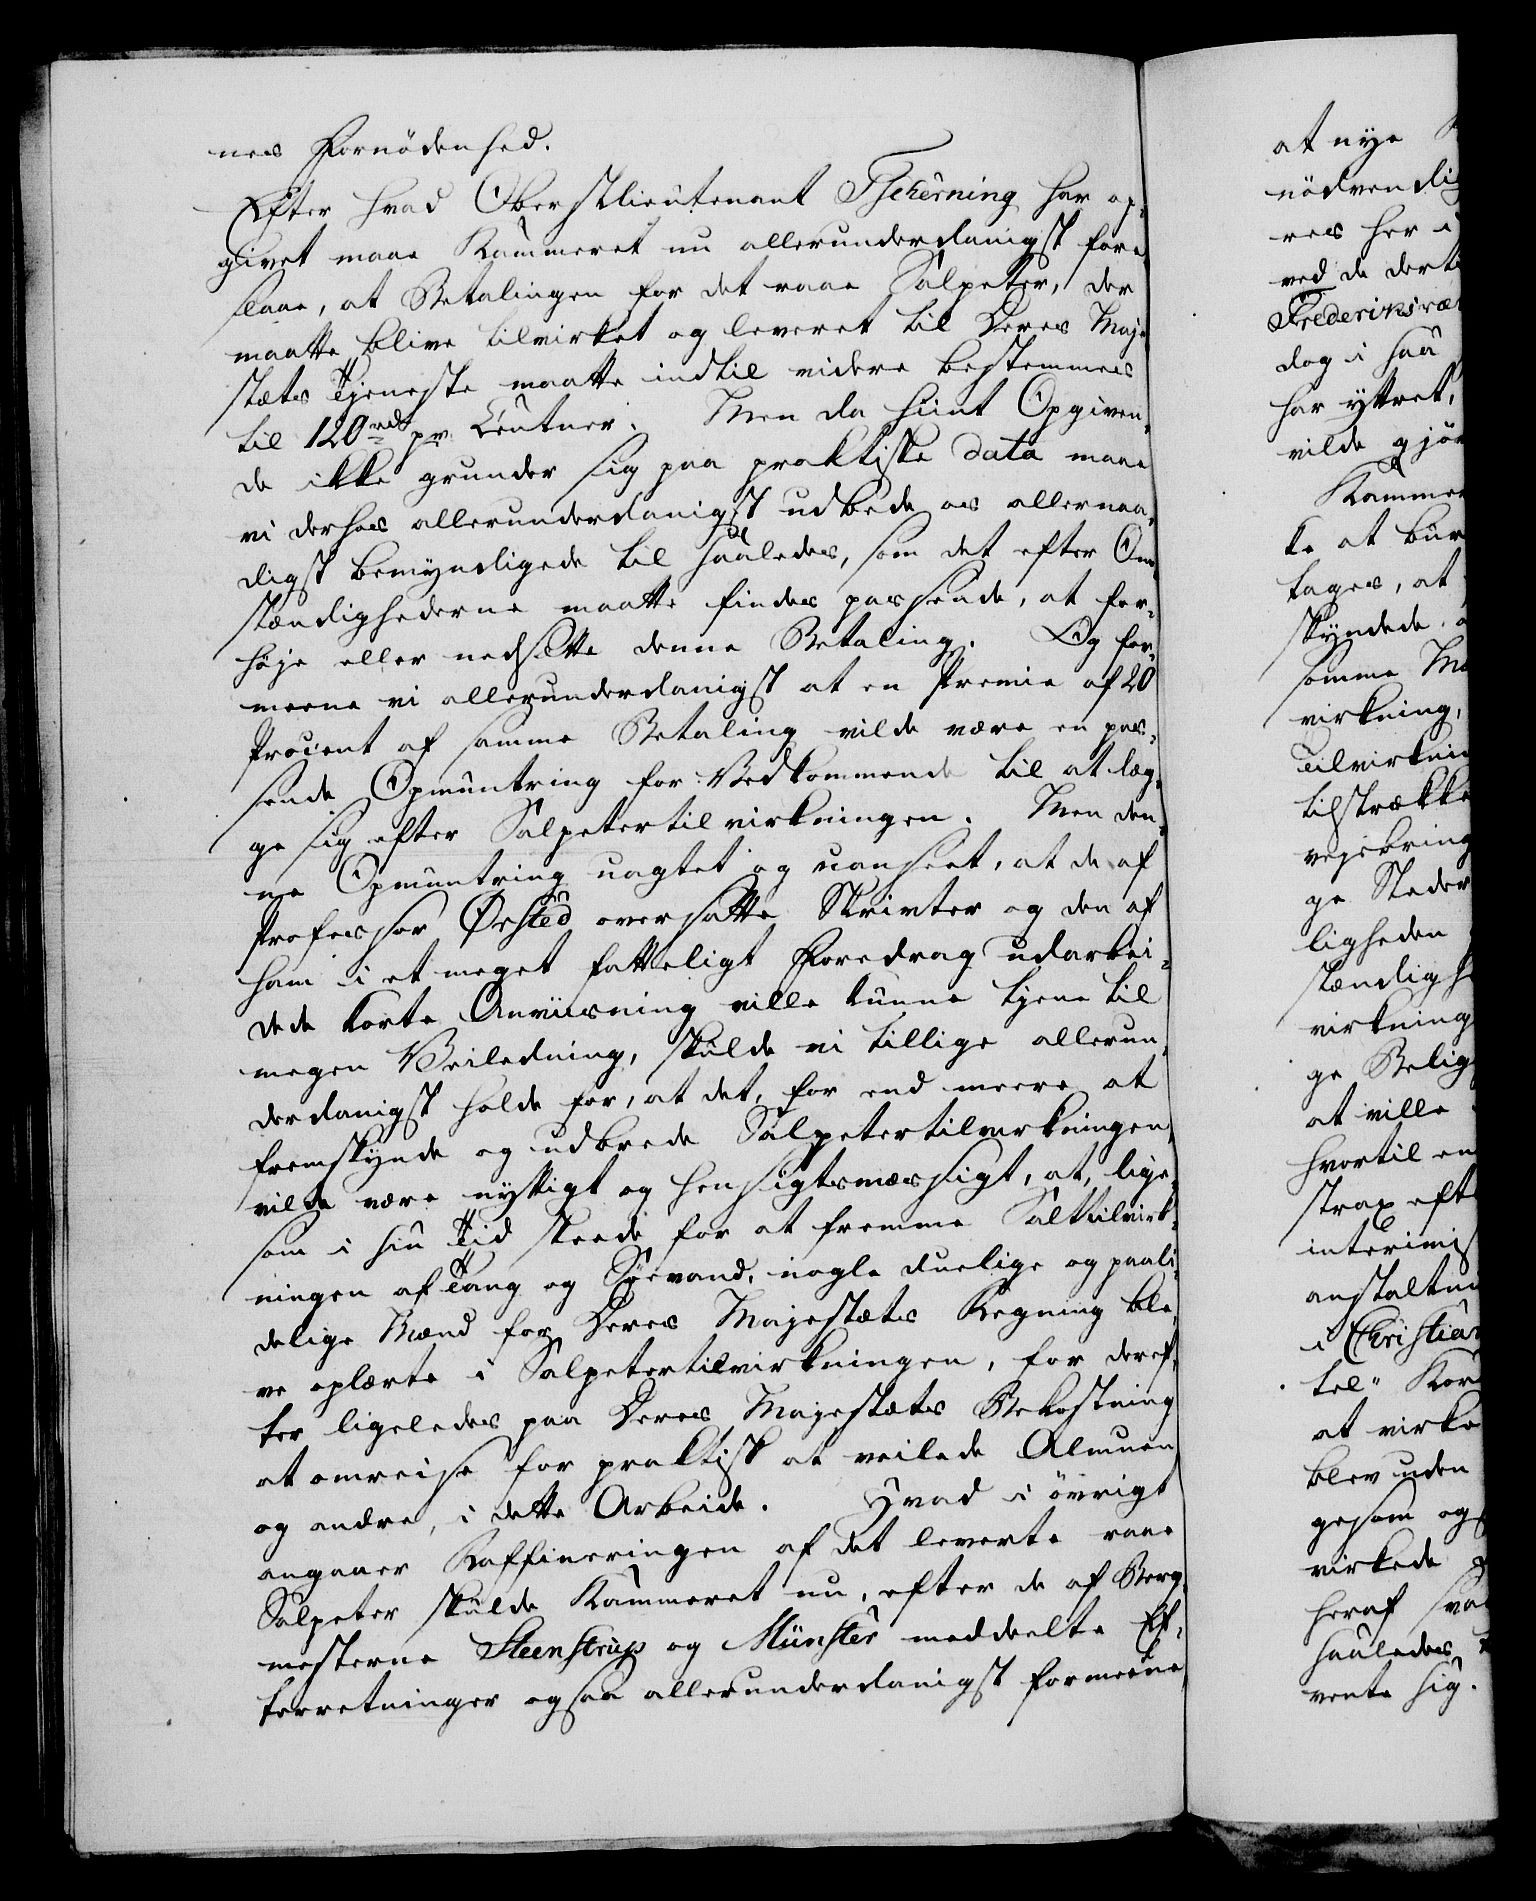 nes Fornödenhed.
Efter hvad Oberstlieutenant Tscherning har op-
givet maae Kammeret nu allerunderdanigst fore-
slaae, at Betalingen for det raae Salpeter, der
maatte blive tilvirket og leveret til Deres Maje-
stæts Tjeneste maatte indtil videre bestemmes
til 120 rd pr Centner. Men da hiint Opgiven-
de ikke grunder sig paa praktiske data maae
vi derhos allerunderdanigst udbede os allernaa-
digst bemyndigede til saaledes, som det efter Om-
stændighederne maatte findes passende, at for-
höje eller nedsætte denne Betaling. Og for-
meene vi allerunderdanigst at en Premie af 20
Procent af samme Betaling vilde være en pas-
sende Opmuntring for Vedkommende til at læg-
ge sig efter Salpetertilvirkningen. Men den-
ne Opmuntring uagtet og uanseet, at de af
Professor Ørsted oversatte Skrivter og den af
ham i et meget fatteligt Foredrag udarbei-
dede korte Anviisning ville kunne tjene til
megen Veiledning, skulde vi tillige allerun-
derdanigst holde for, at det, for end meere at
fremskynde og udbrede Salpetertilvirkningen,
vilde være nyttigt og hensigtsmæssigt, at, lige-
som i sin Tid skeede for at fremme Salttilvirk-
ningen af Tang og Søevand, nogle duelige og paali-
delige Mænd for Deres Majestæts Regning ble-
ve oplærte i Salpetertilvirkningen, for deref-
ter ligeledes paa Deres Majestæts Bekostning
at omreise for praktisk at veilede Almuen
og andre, i dette Arbeide. Hvad i övrigt
angaaer Raffineringen af det leverte raae
Salpeter skulde Kammeret nu, efter de af Berg-
mesterne Steenstrup og Münster meddeelte Ef-
terretninger ogsaa allerunderdanigst formeene
at nye
nödvendig
res her i
ved de derti
Frederiksvær
dog i saa
har yttret,
vilde gjör
Kammer
te at bur
tages, at
skyndede
somme
virkning,
Tilvirknin
tilstrække
vejebring
ge Steder
ligheden
stændighe
virkning
ge Belig
at ville
hvortil en
strax efte
interimis
anstaltni
i Christian
tel" Kor
at virke
blev uden
gesom og
virkede
heraf sva
saaledes
vente sig.